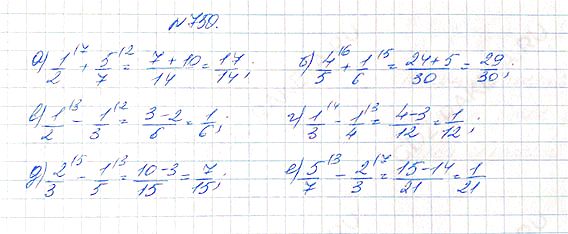 №750.
а) 1/2 \7 + 5/7 \2 = (7+10)/14 = 17/14; б) 4/5 \6 + 1/6 \5 = (24+5)/30 = 29/30;
в) 1/2 \3 − 1/3 \2 = (3−2)/6 = 1/6; г) 1/3 \4 − 1/4 \3 = (4−3)/12 = 1/12;
д) 2/3 \5 − 1/5 \3 = (10−3)/15 = 7/15; е) 5/7 \3 − 2/3 \7 = (15−14)/21 = 1/21